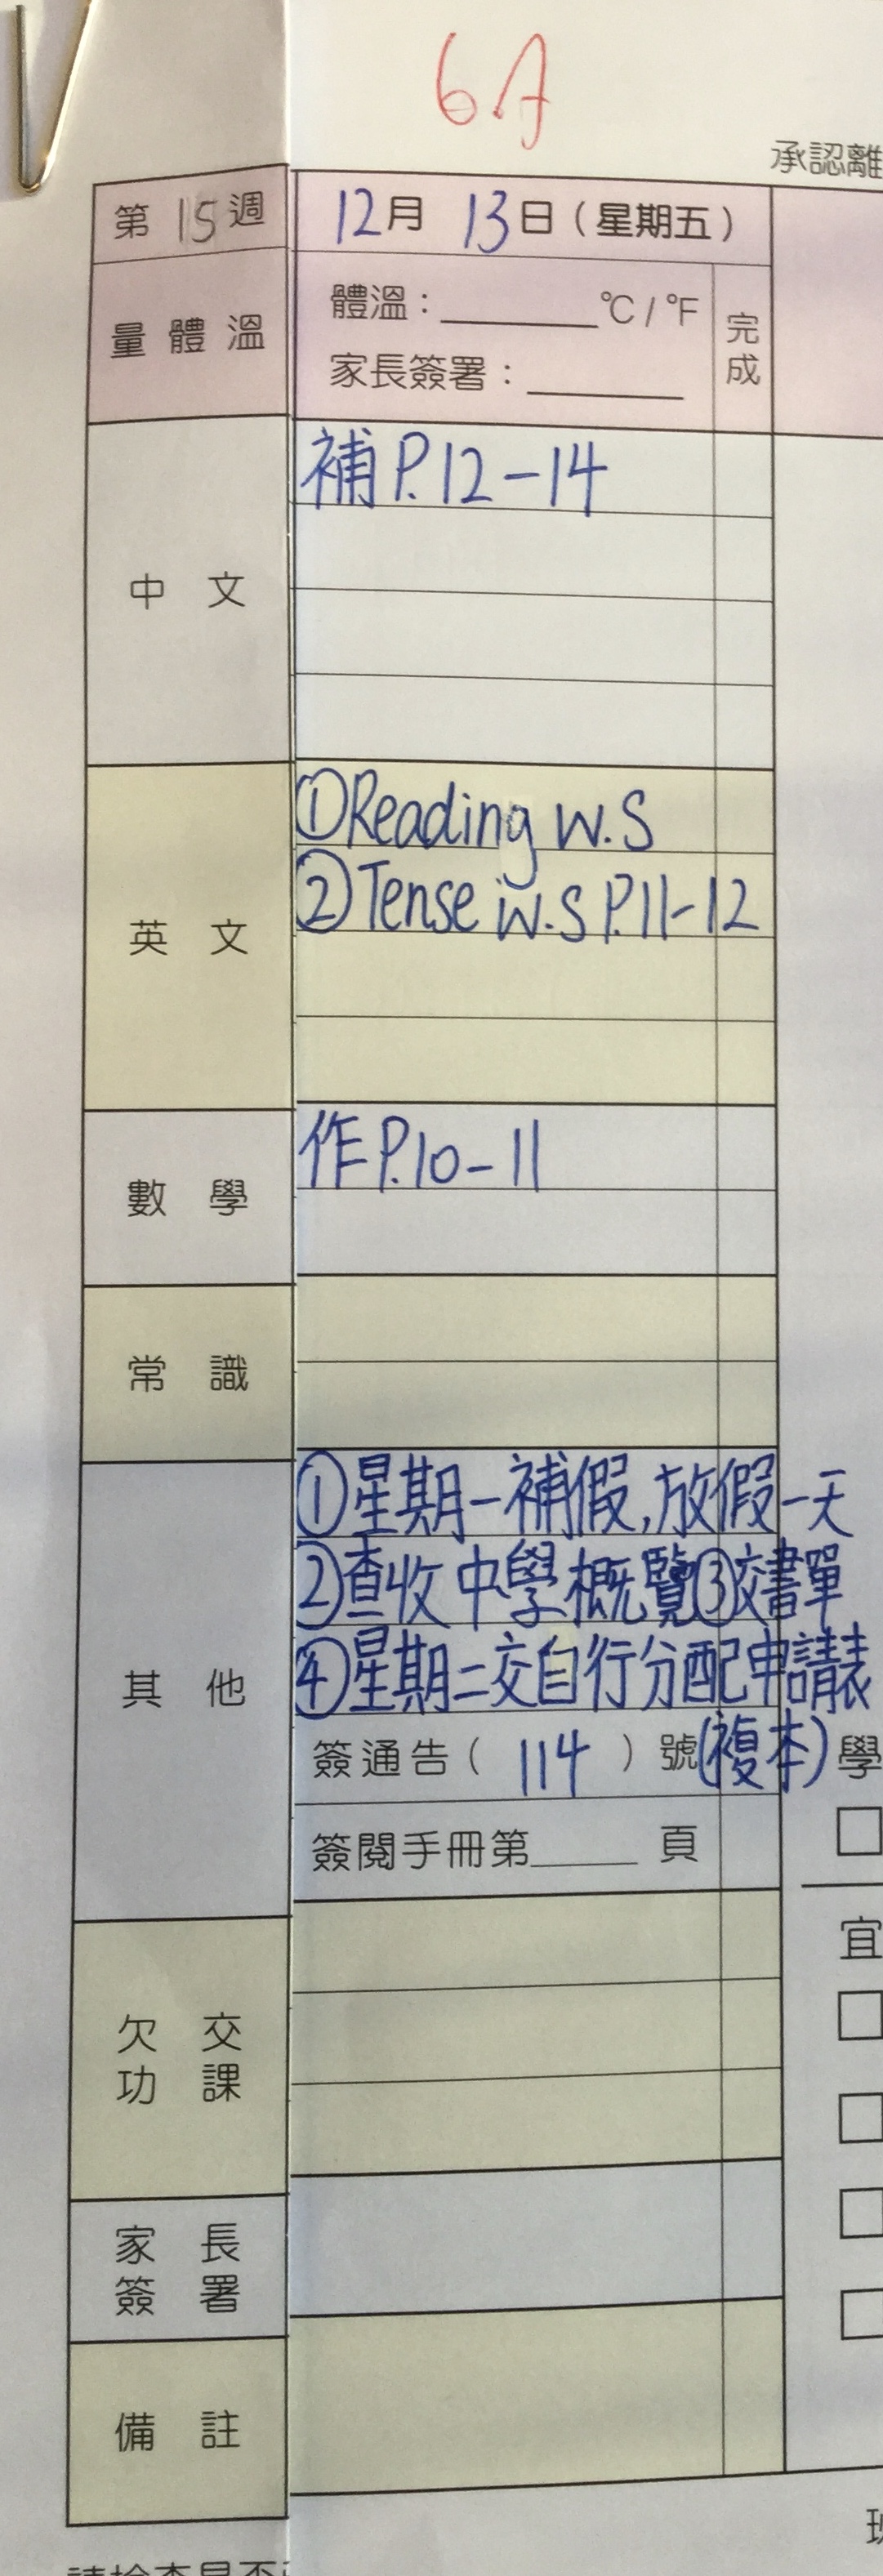 6A
承認離
第15週 12月13日（星期五）
量體溫 體溫：______°C / °F 完成
家長簽署：______
中文 補P.12-14
英文 ①Reading W.S
②Tense W.S P.11-12
數學 作P.10-11
常識
其他 ①星期一補假,放假一天
②查收中學概覽③交書單
④星期二交自行分配申請表
簽通告（114）號(複本) 學
簽閱手冊第______頁
宜
欠交功課
家長簽署
備註